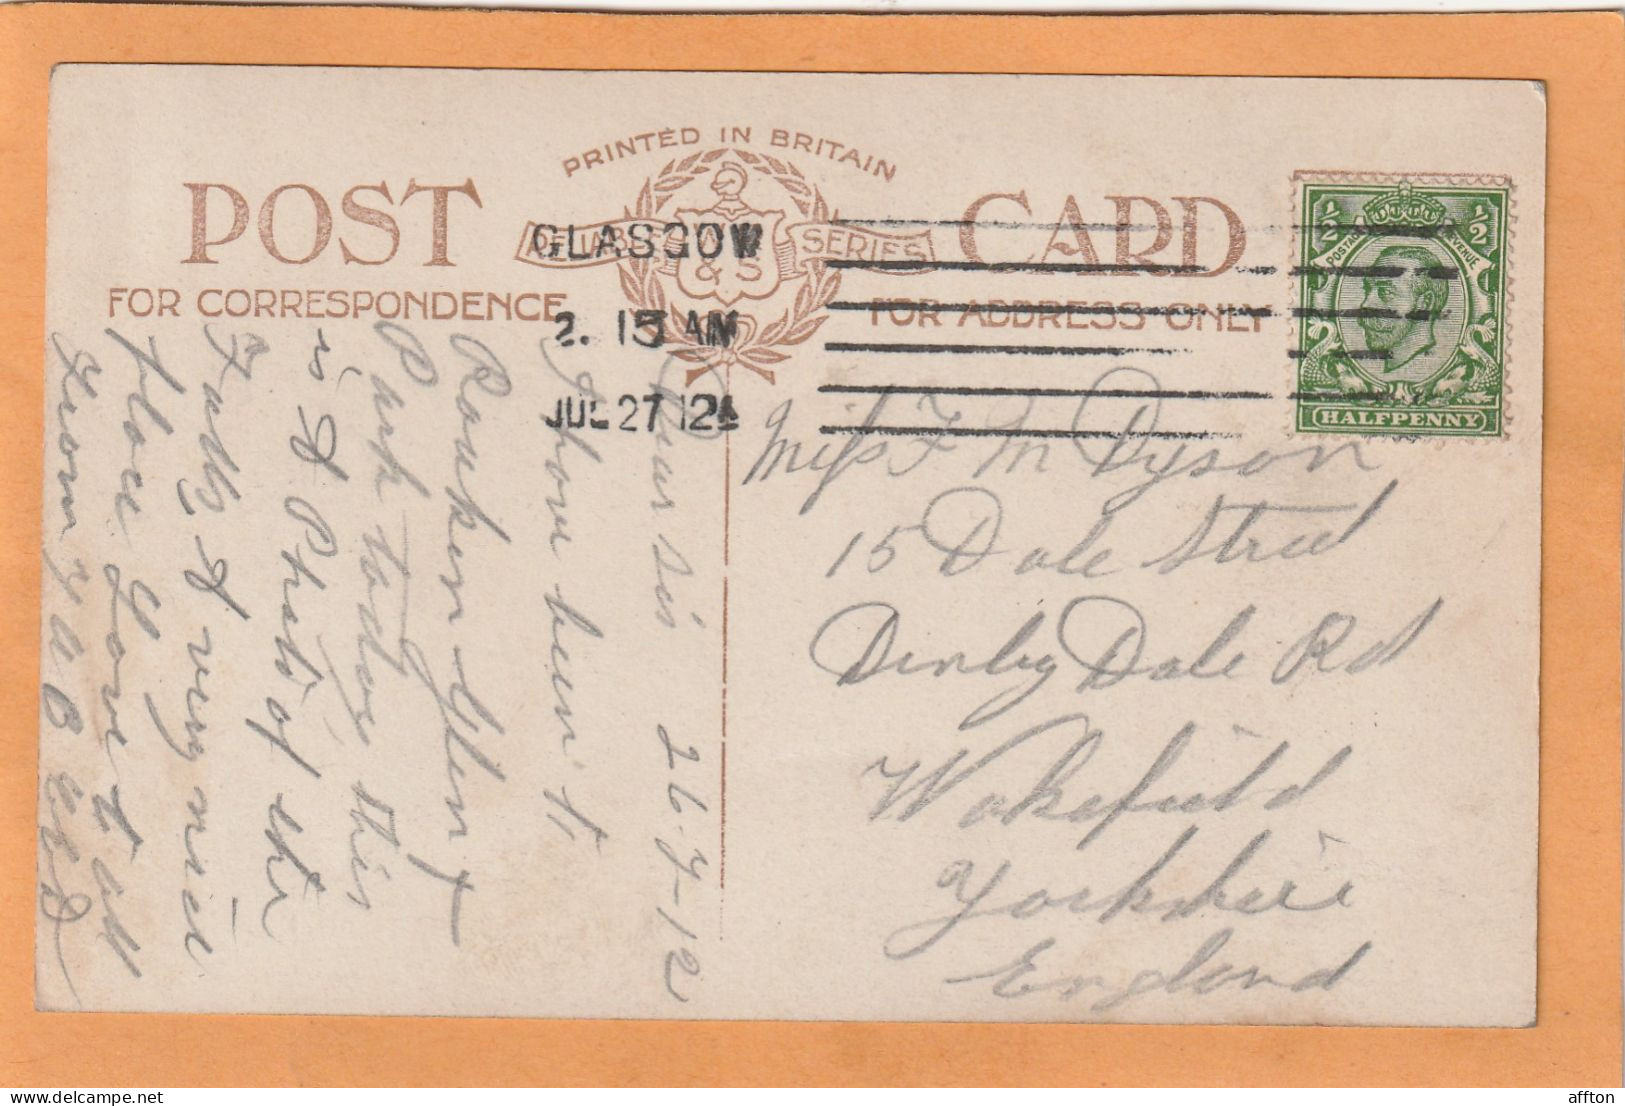 PRINTED IN BRITAIN
POST CARD
RELIABLE W.R. & S SERIES
FOR CORRESPONDENCE
FOR ADDRESS ONLY
GLASGOW
2. 15 AM
JUL 27 12
½ ½
POSTAGE REVENUE
HALFPENNY
Dear sis 26-7-12
I have been to
Rouken Glen
Park today this
is A Photo of the
Falls A very nice
place Love to all
from
Miss F M Dyson
15 Dale Street
Denby Dale Rd
Wakefield
Yorkshire
England
affton